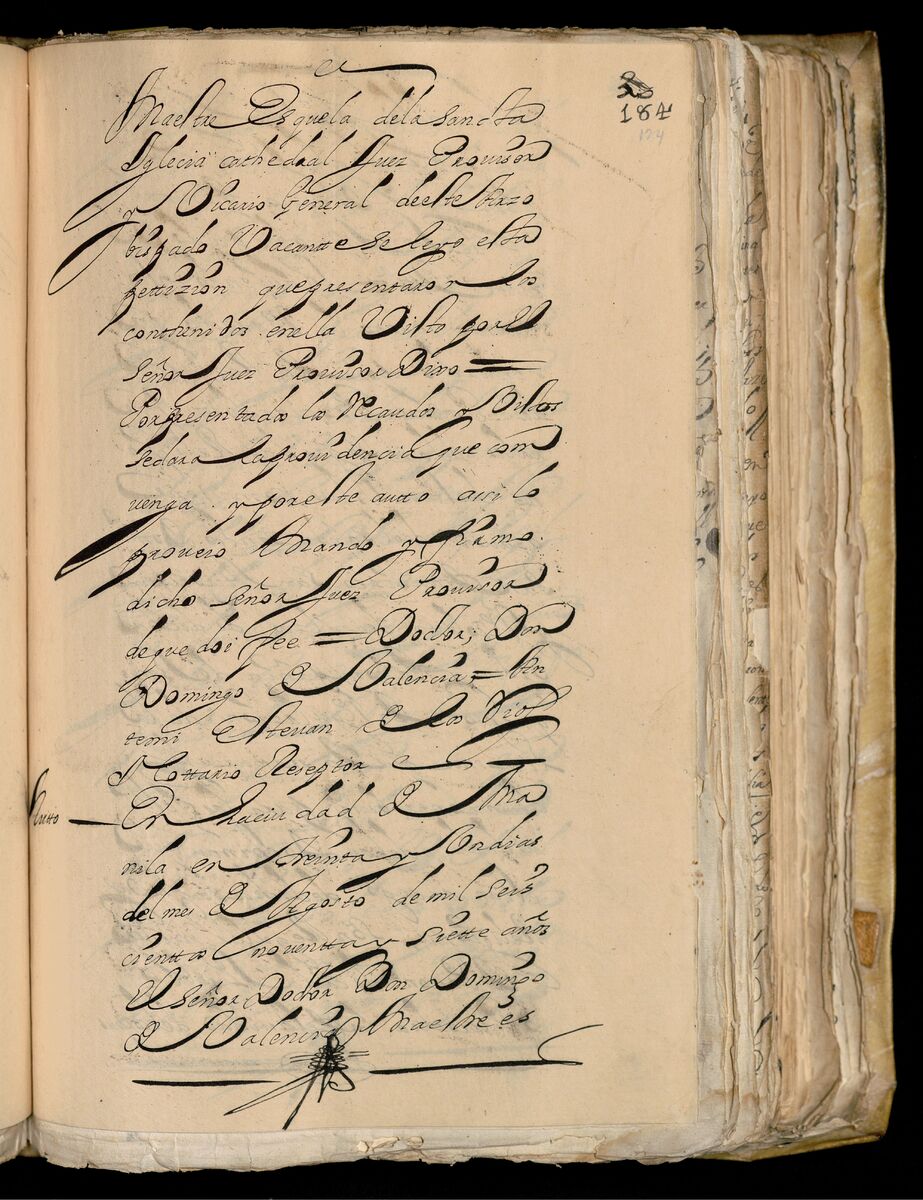 184
124
Maestre Esquela dela sancta
Yglecia cathedral Juez Provisor
y Vicario General deeste Arzo
bispado Vacantte se leyo esta
pettizion quepresentaron los
conthenidos enella Visto por el
señor Juez Provisor Dixo =
Porpresentados los Recaudos y Vistos
sedara laprovidencia que com
venga y poreste autto assi lo
proveio Mando y firmo
dicho señor Juez Provisor
deque doi fee = Doctor, Don
Domingo de Valencia, = An
temi Estevan de los Rios
Nottario Reseptor
Autto
En laciudad de Ma
nila en treinta y Un dias
del mes de Agosto de mil seis
cienttos noventta y siette años
El señor Doctor Don Domingo
de Valencia Maestre es